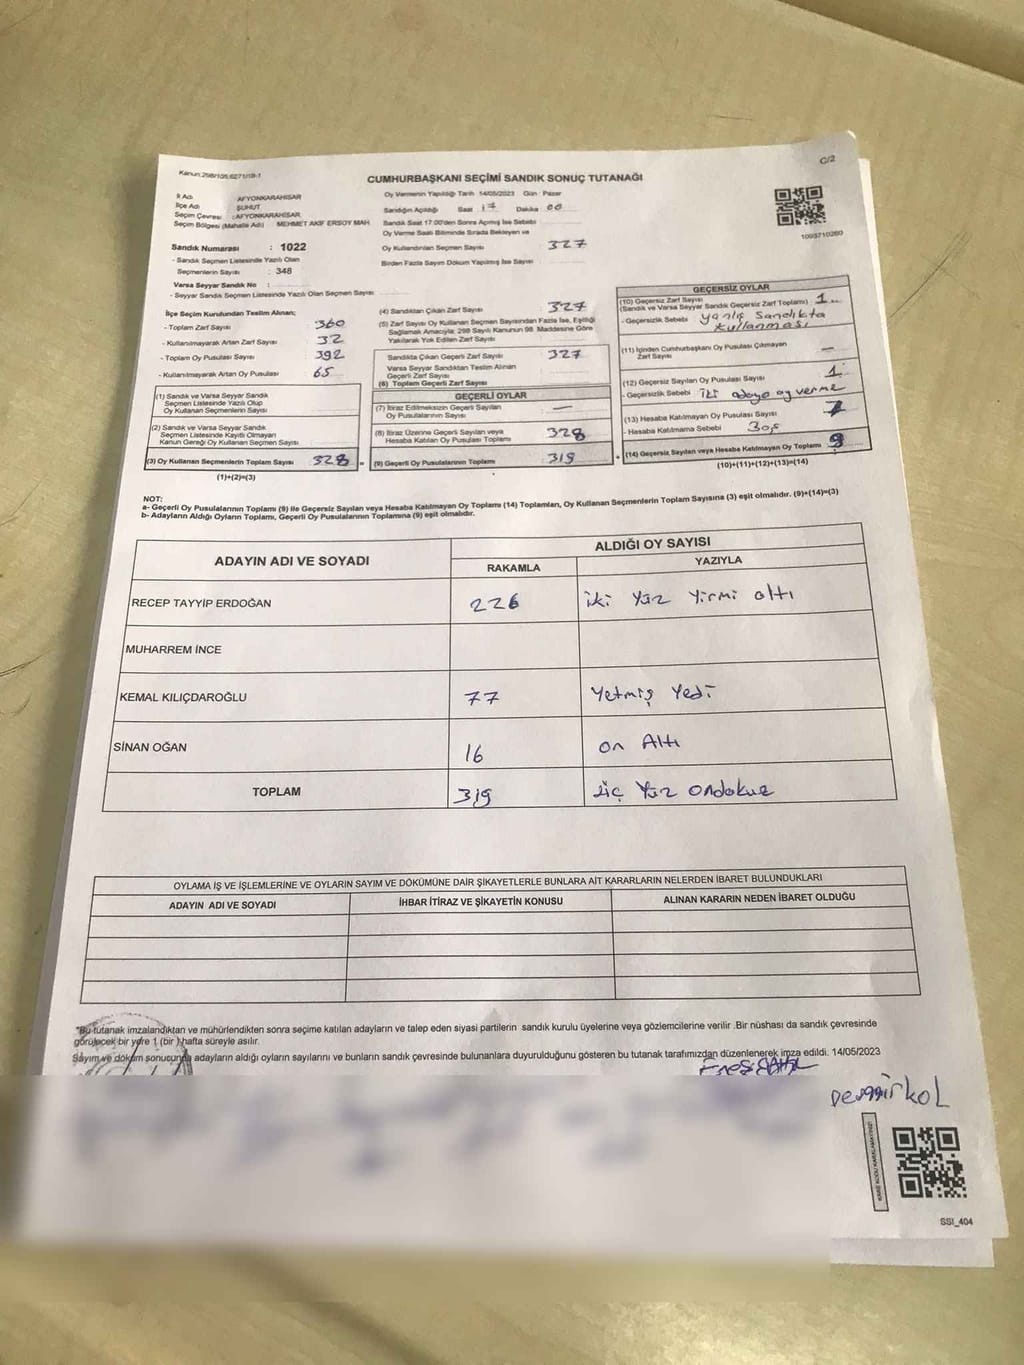 Kanun:298/105;6271/19-1
C/2
CUMHURBAŞKANI SEÇİMİ SANDIK SONUÇ TUTANAĞI
İl Adı AFYONKARAHİSAR
İlçe Adı ŞUHUT
Seçim Çevresi :AFYONKARAHİSAR
Seçim Bölgesi (Mahalle Adı) MEHMET AKİF ERSOY MAH.
Sandık Numarası : 1022
- Sandık Seçmen Listesinde Yazılı Olan
Seçmenlerin Sayısı : 348
Varsa Seyyar Sandık No :
- Seyyar Sandık Seçmen Listesinde Yazılı Olan Seçmen Sayısı
Oy Vermenin Yapıldığı Tarih 14/05/2023 Gün : Pazar
Sandığın Açıldığı Saat 17 Dakika 00
Sandık Saat 17:00'den Sonra Açılmış İse Sebebi
Oy Verme Saati Bitiminde Sırada Bekleyen ve
Oy Kullandırılan Seçmen Sayısı 327
Birden Fazla Sayım Döküm Yapılmış İse Sayısı
1093710260
İlçe Seçim Kurulundan Teslim Alınan;
- Toplam Zarf Sayısı 360
- Kullanılmayarak Artan Zarf Sayısı 32
- Toplam Oy Pusulası Sayısı 392
- Kullanılmayarak Artan Oy Pusulası 65
(1) Sandık ve Varsa Seyyar Sandık
Seçmen Listesinde Yazılı Olup
Oy Kullanan Seçmenlerin Sayısı
(2) Sandık ve Varsa Seyyar Sandık
Seçmen Listesinde Kayıtlı Olmayan
Kanun Gereği Oy Kullanan Seçmen Sayısı
(3) Oy Kullanan Seçmenlerin Toplam Sayısı 328 =
(1)+(2)=(3)
(4) Sandıktan Çıkan Zarf Sayısı 327
(5) Zarf Sayısı Oy Kullanan Seçmen Sayısından Fazla İse, Eşitliği
Sağlamak Amacıyla; 298 Sayılı Kanunun 98. Maddesine Göre
Yakılarak Yok Edilen Zarf Sayısı
Sandıkta Çıkan Geçerli Zarf Sayısı 327
Varsa Seyyar Sandıktan Teslim Alınan
Geçerli Zarf Sayısı
(6) Toplam Geçerli Zarf Sayısı
GEÇERLİ OYLAR
(7) İtiraz Edilmeksizin Geçerli Sayılan
Oy Pusulalarının Sayısı —
(8) İtiraz Üzerine Geçerli Sayılan veya
Hesaba Katılan Oy Pusulası Toplamı 328
(9) Geçerli Oy Pusulalarının Toplamı 319 +
GEÇERSİZ OYLAR
(10) Geçersiz Zarf Sayısı
(Sandık ve Varsa Seyyar Sandık Geçersiz Zarf Toplamı) 1
- Geçersizlik Sebebi yanlış Sandıkta
kullanması
(11) İçinden Cumhurbaşkanı Oy Pusulası Çıkmayan
Zarf Sayısı —
(12) Geçersiz Sayılan Oy Pusulası Sayısı 1
- Geçersizlik Sebebi iki adaya oy verme
(13) Hesaba Katılmayan Oy Pusulası Sayısı 7
- Hesaba Katılmama Sebebi Boş
(14) Geçersiz Sayılan veya Hesaba Katılmayan Oy Toplamı 9
(10)+(11)+(12)+(13)=(14)
NOT:
a- Geçerli Oy Pusulalarının Toplamı (9) ile Geçersiz Sayılan veya Hesaba Katılmayan Oy Toplamı (14) Toplamları, Oy Kullanan Seçmenlerin Toplam Sayısına (3) eşit olmalıdır. (9)+(14)=(3)
b- Adayların Aldığı Oyların Toplamı, Geçerli Oy Pusulalarının Toplamına (9) eşit olmalıdır.
ADAYIN ADI VE SOYADI
ALDIĞI OY SAYISI
RAKAMLA YAZIYLA
RECEP TAYYİP ERDOĞAN 226 iki yüz yirmi altı
MUHARREM İNCE
KEMAL KILIÇDAROĞLU 77 Yetmiş Yedi
SİNAN OĞAN 16 on Altı
TOPLAM 319 üç Yüz ondokuz
OYLAMA İŞ VE İŞLEMLERİNE VE OYLARIN SAYIM VE DÖKÜMÜNE DAİR ŞİKAYETLERLE BUNLARA AİT KARARLARIN NELERDEN İBARET BULUNDUKLARI
ADAYIN ADI VE SOYADI İHBAR İTİRAZ VE ŞİKAYETİN KONUSU ALINAN KARARIN NEDEN İBARET OLDUĞU
*Bu tutanak imzalandıktan ve mühürlendikten sonra seçime katılan adayların ve talep eden siyasi partilerin sandık kurulu üyelerine veya gözlemcilerine verilir .Bir nüshası da sandık çevresinde
görülecek bir yere 1 (bir ) hafta süreyle asılır.
Sayım ve döküm sonucunda adayların aldığı oyların sayılarını ve bunların sandık çevresinde bulunanlara duyurulduğunu gösteren bu tutanak tarafımızdan düzenlenerek imza edildi. 14/05/2023
KARE KODU KARALAMAYINIZ!
SSI_404